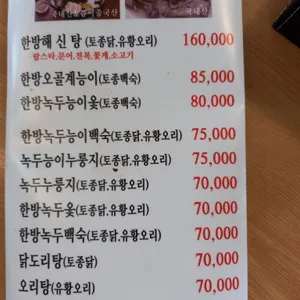 국내산
한방해 신 탕 (토종닭,유황오리) 160,000
랍스타,문어,전복,꽃게,소고기
한방오골계능이(토종백숙) 85,000
한방녹두능이옻(토종백숙) 80,000
한방녹두능이백숙(토종닭,유황오리) 75,000
녹두능이누룽지(토종닭,유황오리) 75,000
녹두누룽지(토종닭,유황오리) 70,000
한방녹두옻(토종닭,유황오리) 70,000
한방녹두백숙(토종닭,유황오리) 70,000
닭도리탕(토종닭) 70,000
오리탕(유황오리) 70,000